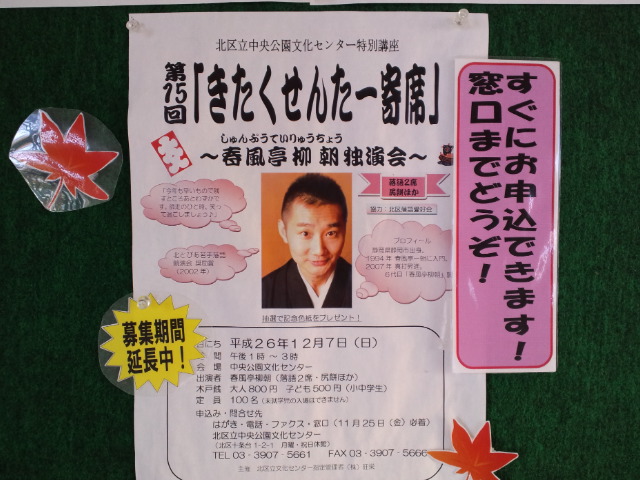 北区立中央公園文化センター特別講座
第15回
「きたくせんたー寄席」
しゅんぷうていりゅうちょう
～春風亭柳朝独演会～
落語2席
尻餅ほか
協力：北区落語愛好会
北とぴあ若手落語
競演会 奨励賞
（2002年）
プロフィール
静岡県静岡市出身。
1994年 春風亭一朝に入門。
2007年 真打昇進。
六代目「春風亭柳朝」
抽選で記念色紙をプレゼント！
すぐにお申込できます！
窓口までどうぞ！
募集期間
延長中！
にち 平成26年12月7日（日）
間 午後1時～3時
会 場 中央公園文化センター
出演者 春風亭柳朝（落語2席・尻餅ほか）
木戸銭 大人800円 子ども500円（小中学生）
定 員 100名（未就学児の入場はできません）
申込み・問合せ先
はがき・電話・ファクス・窓口（11月25日（金）必着）
北区立中央公園文化センター
（北区十条台1-2-1 月曜・祝日休館）
TEL 03-3907-5661 FAX 03-3907-5666
主催 北区立文化センター指定管理者（株）旺栄